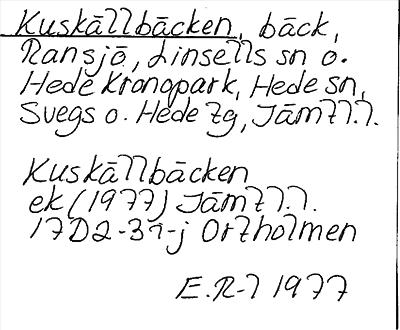 Kuskällbäcken, bäck,
Ransjö, Linsells sn o.
Hede kronopark, Hede sn,
Svegs o. Hede tg, Jämtl.l.
Kuskällbäcken
ek (1977) Jämtl.l.
17D2-3i-j Ortholmen
E.R-l 1977